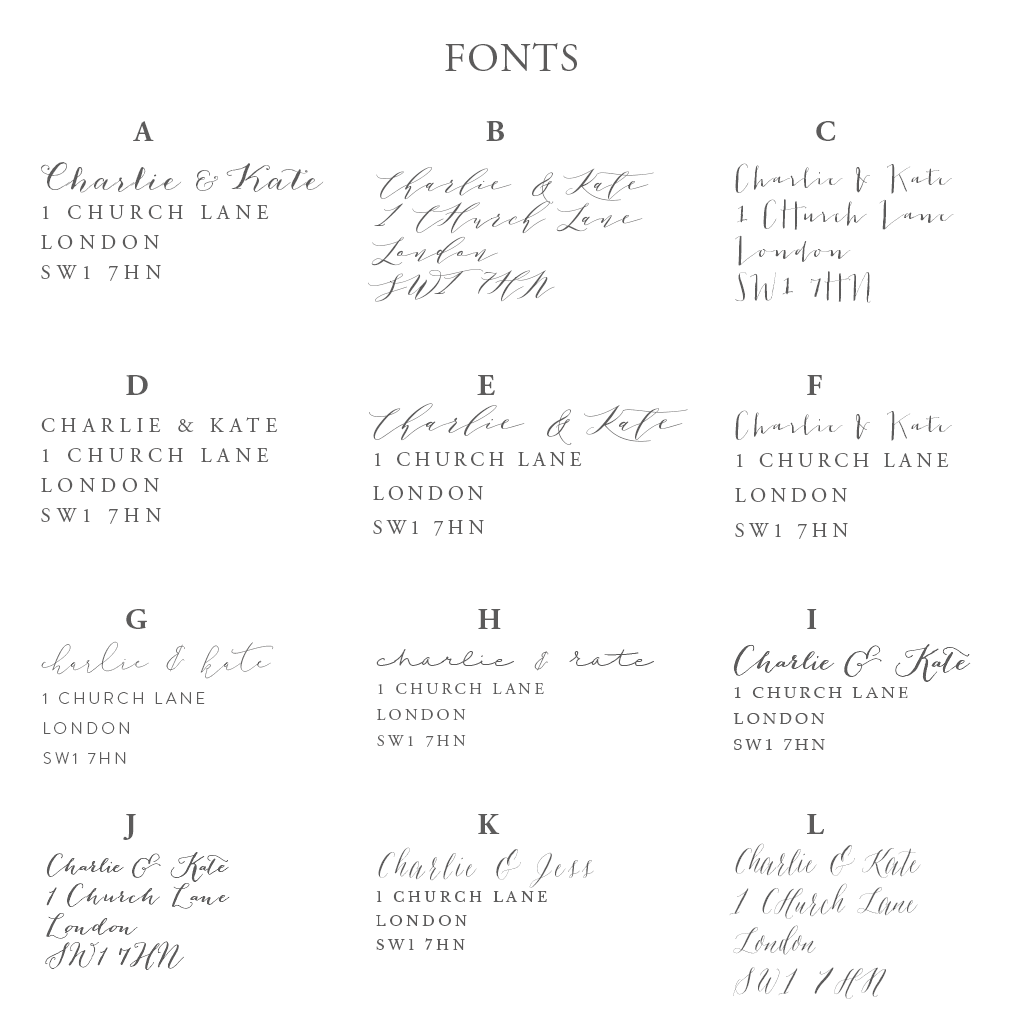 FONTS
A
Charlie & Kate
1 CHURCH LANE
LONDON
SW1 7HN
B
Charlie & Kate
1 CHurch Lane
London
SW1 7HN
C
Charlie & Kate
1 CHurch Lane
London
SW1 7HN
D
CHARLIE & KATE
1 CHURCH LANE
LONDON
SW1 7HN
E
Charlie & Kate
1 CHURCH LANE
LONDON
SW1 7HN
F
Charlie & Kate
1 CHURCH LANE
LONDON
SW1 7HN
G
charlie & kate
1 CHURCH LANE
LONDON
SW1 7HN
H
charlie & kate
1 CHURCH LANE
LONDON
SW1 7HN
I
Charlie & Kate
1 CHURCH LANE
LONDON
SW1 7HN
J
Charlie & Kate
1 Church Lane
London
SW1 7HN
K
Charlie & Jess
1 CHURCH LANE
LONDON
SW1 7HN
L
Charlie & Kate
1 CHurch Lane
London
SW1 7HN